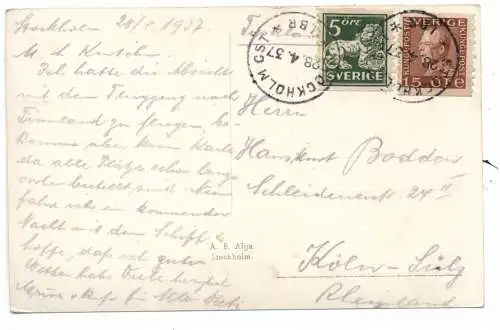 Stockholm 28/4 1937
M. d. 
Ich hatte die Absicht
mit dem Flugzeug nach
Finnland zu fliegen, be-
komme aber kein Karte
da alle Plätze schon lange
vorher bestellt sind. Nun
fahre ich in kommender
Nacht mit dem Schiff &
hoffe, daß ich gutes
Wetter habe. Viele herzl.
Grüsse & Kuss für Alle
Tyskland
5 ÖRE
SVERIGE
SVERIGE
15 ÖRE
STOCKHOLM
28.4.37
Herrn
Hanskurt Bodden
Schleidenerstr. 24 II
Köln-Sülz
Rheinland
A. B. Alja
Stockholm.